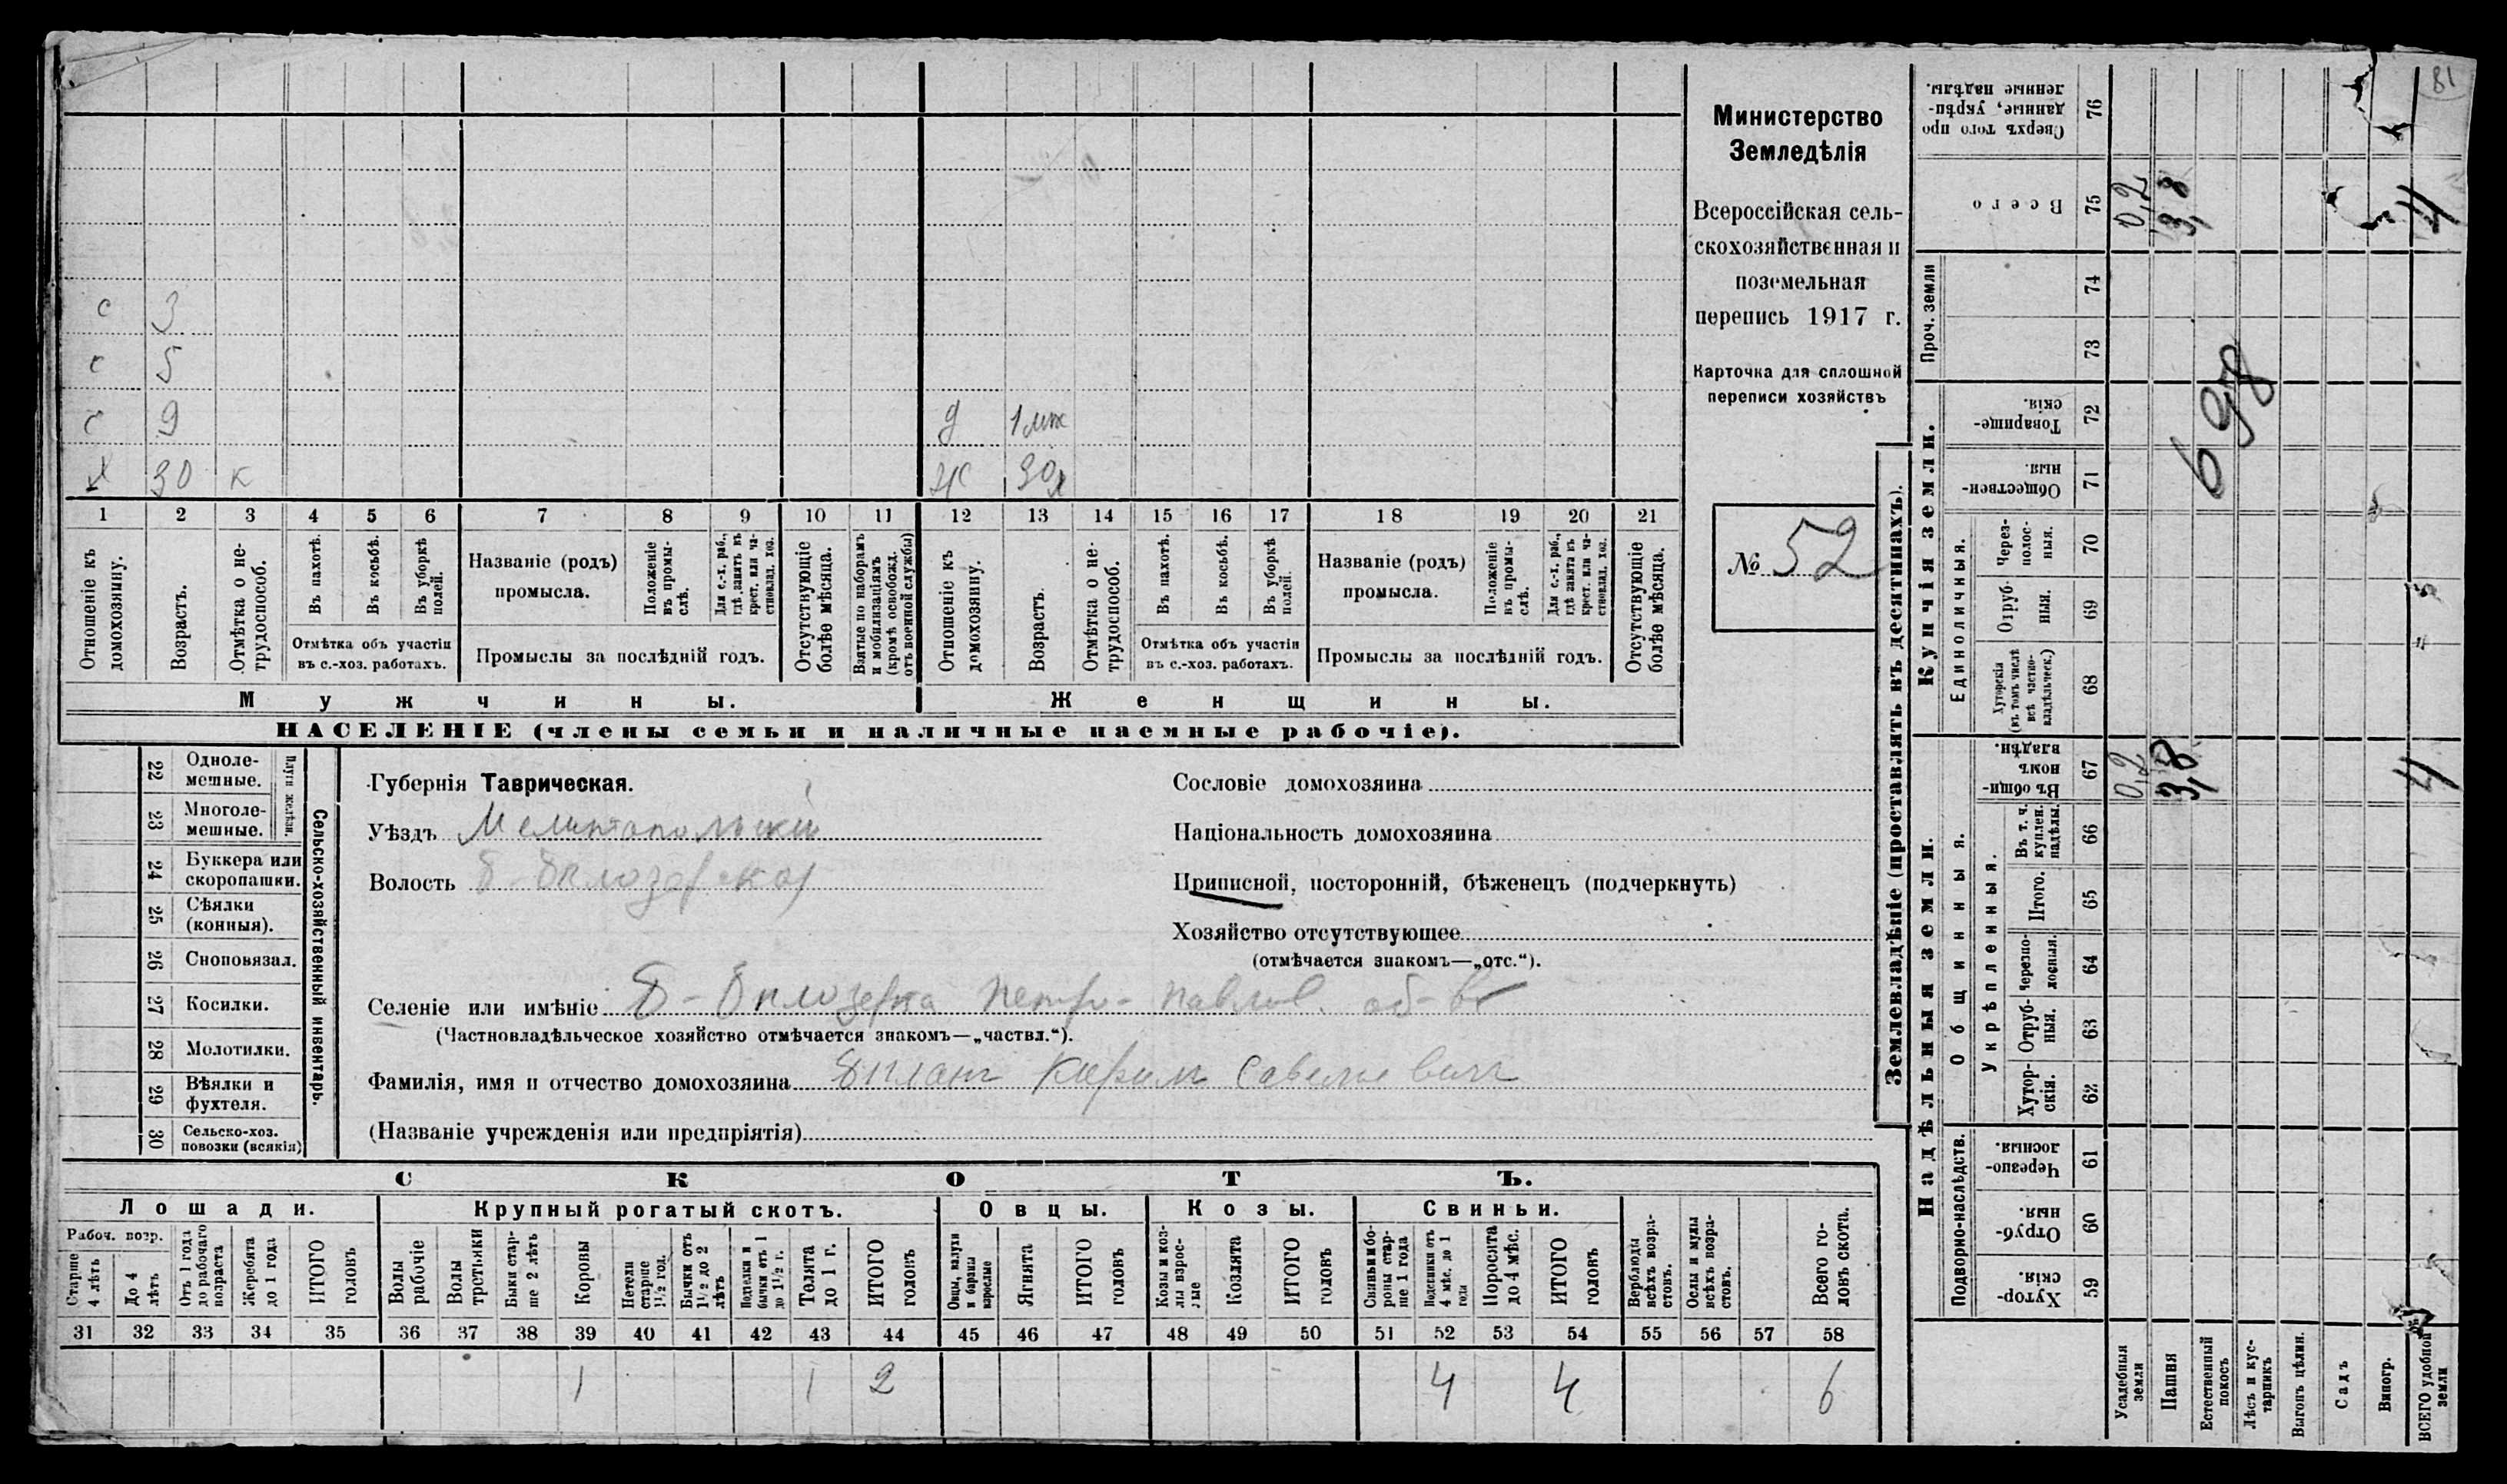 81
с 3
с 5
с 9 д 1 мѣс
х 30 к ж 30
1 2 3 4 5 6 7 8 9 10 11 12 13 14 15 16 17 18 19 20 21
Отношеніе къ домохозяину.
Возрастъ.
Отмѣтка о не-трудоспособ.
Въ пахотѣ.
Въ косьбѣ.
Въ уборкѣ полей.
Отмѣтка объ участіи
въ с.-хоз. работахъ.
Названіе (родъ)
промысла.
Положеніе въ промы-слѣ.
Для с.-х. раб., гдѣ занятъ въ крест. или ча-стновлад. хоз.
Промыслы за послѣдній годъ.
Отсутствующіе болѣе мѣсяца.
Взятые по наборамъ и мобилизаціямъ (кромѣ освобожд. отъ военной службы)
Отношеніе къ домохозяину.
Возрастъ.
Отмѣтка о не-трудоспособ.
Въ пахотѣ.
Въ косьбѣ.
Въ уборкѣ полей.
Отмѣтка объ участіи
въ с.-хоз. работахъ.
Названіе (родъ)
промысла.
Положеніе въ промы-слѣ.
Для с.-х. раб., гдѣ занята въ крест. или ча-стновлад. хоз.
Промыслы за послѣдній годъ.
Отсутствующіе болѣе мѣсяца.
Мужчины. Женщины.
НАСЕЛЕНІЕ (члены семьи и наличные наемные рабочіе).
Министерство
Земледѣлія
Всероссійская сель-
скохозяйственная и
поземельная
перепись 1917 г.
Карточка для сплошной
переписи хозяйствъ
№ 52
22 Одноле-мешные.
23 Многоле-мешные.
Плуги желѣзн.
24 Буккера или скоропашки.
25 Сѣялки (конныя).
26 Сноповязал.
27 Косилки.
28 Молотилки.
29 Вѣялки и фухтеля.
30 Сельско-хоз. повозки (всякія)
Сельско-хозяйственный инвентарь.
Губернія Таврическая.
Уѣздъ Мелитопольскій
Волость Б-Бѣлозерская
Сословіе домохозяина
Національность домохозяина
Приписной, посторонній, бѣженецъ (подчеркнуть)
Хозяйство отсутствующее
(отмѣчается знакомъ—„отс.“).
Селеніе или имѣніе Б-Бѣлозерка Петро-Павлов. об-во
(Частновладѣльческое хозяйство отмѣчается знакомъ—„частвл.“).
Фамилія, имя и отчество домохозяина Савельевичъ
(Названіе учрежденія или предпріятія)
СКОТЪ.
Лошади. Крупный рогатый скотъ. Овцы. Козы. Свиньи.
Рабоч. возр.
Старше 4 лѣтъ
До 4 лѣтъ
Отъ 1 года до рабочаго возраста
Жеребята до 1 года
ИТОГО головъ
Волы рабочіе
Волы третьяки
Быки стар-ше 2 лѣтъ
Коровы
Нетели старше 1½ год.
Бычки отъ 1½ до 2 лѣтъ
Подтелки и бычки отъ 1 до 1½ г.
Телята до 1 г.
ИТОГО головъ
Овцы, валухи и бараны взрослые
Ягнята
ИТОГО головъ
Козы и коз-лы взрос-лые
Козлята
ИТОГО головъ
Свиньи и бо-ровы стар-ше 1 года
Подсвинки отъ 4 мѣс. до 1 года
Поросята до 4 мѣс.
ИТОГО головъ
Верблюды всѣхъ возра-стовъ.
Ослы и мулы всѣхъ возра-стовъ.
Всего го-ловъ скота.
31 32 33 34 35 36 37 38 39 40 41 42 43 44 45 46 47 48 49 50 51 52 53 54 55 56 57 58
1 1 2 4 4 6
Землевладѣніе (проставлять въ десятинахъ).
Надѣльныя земли. Купчія земли. Проч. земли
Подворно-наслѣдств.
Общинныя.
Укрѣпленныя.
Единоличныя.
Хутор-скія. 59
Отруб-ныя. 60
Черезпо-лосныя. 61
Хутор-скія. 62
Отруб-ныя. 63
Черезпо-лосныя. 64
Итого. 65
Въ т. ч. куплен. надѣлы. 66
Въ общи-номъ владѣн. 67
Хуторскія (въ томъ числѣ всѣ частно-владѣльческ.) 68
Отруб-ныя. 69
Через-полос-ныя. 70
Обществен-ныя. 71
Товарище-скія. 72
73
74
Всего 75
Сверхъ того про-данные, укрѣп-ленные надѣлы. 76
Усадебныя земли 0,2 0,2
Пашня 3,8 3,8
Естественный покосъ
Лѣсъ и кус-тарникъ
Выгонъ цѣлин.
Садъ
Виногр.
ВСЕГО удобной земли 4 4
698